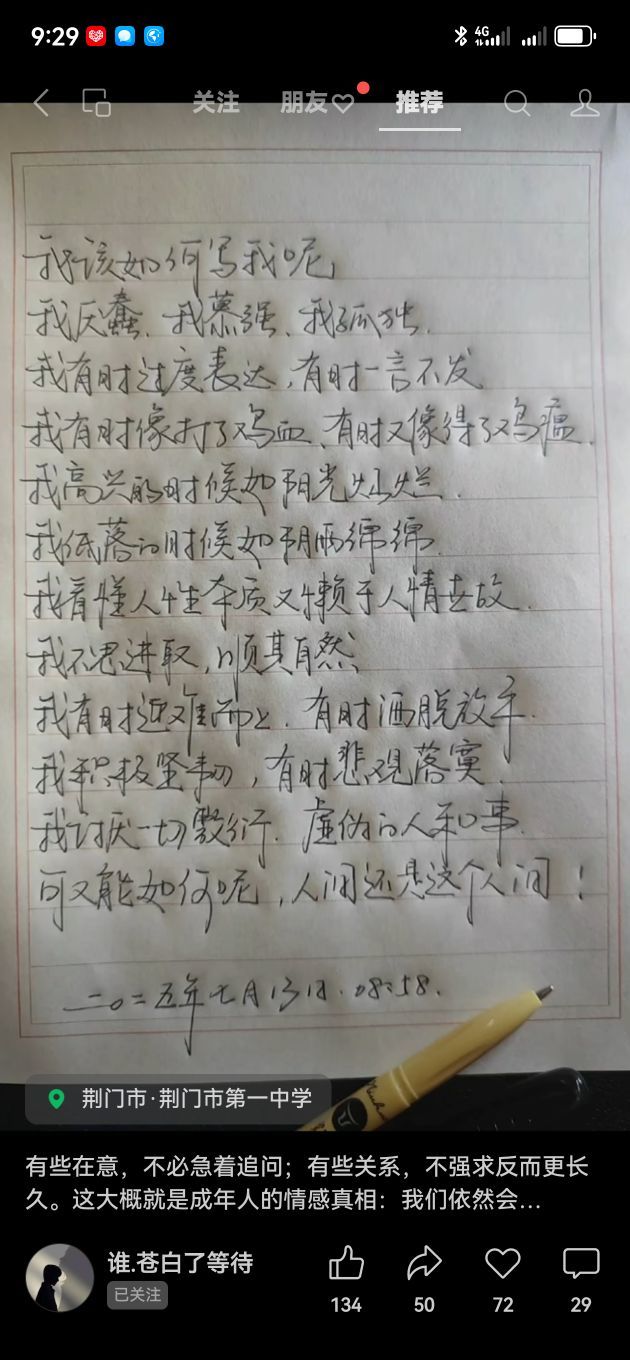 9:29
4G
关注
朋友
推荐
我该如何写我呢,
我厌蠢、我慕强、我孤独.
我有时过度表达,有时一言不发
我有时像打了鸡血、有时又像得了鸡瘟.
我高兴的时候如阳光灿烂.
我低落的时候如阴雨绵绵.
我看懂人性本质又懒于人情世故.
我不思进取,顺其自然
我有时迎难而上、有时洒脱放手.
我积极坚韧,有时悲观落寞.
我讨厌一切敷衍、虚伪的人和事.
可又能如何呢,人间还是这个人间!
二〇二五年七月13日.08:58.
荆门市·荆门市第一中学
有些在意，不必急着追问；有些关系，不强求反而更长
久。这大概就是成年人的情感真相：我们依然会...
谁.苍白了等待
已关注
134
50
72
29